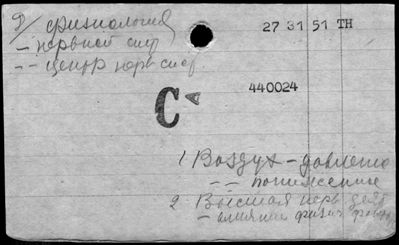 физиология
27 31 51 TH
– нервной сис
– – центр нерв сис.
С А
440024
1 Воздух – давление
– – понижение
2 Высшая нерв деят
– влияние физич